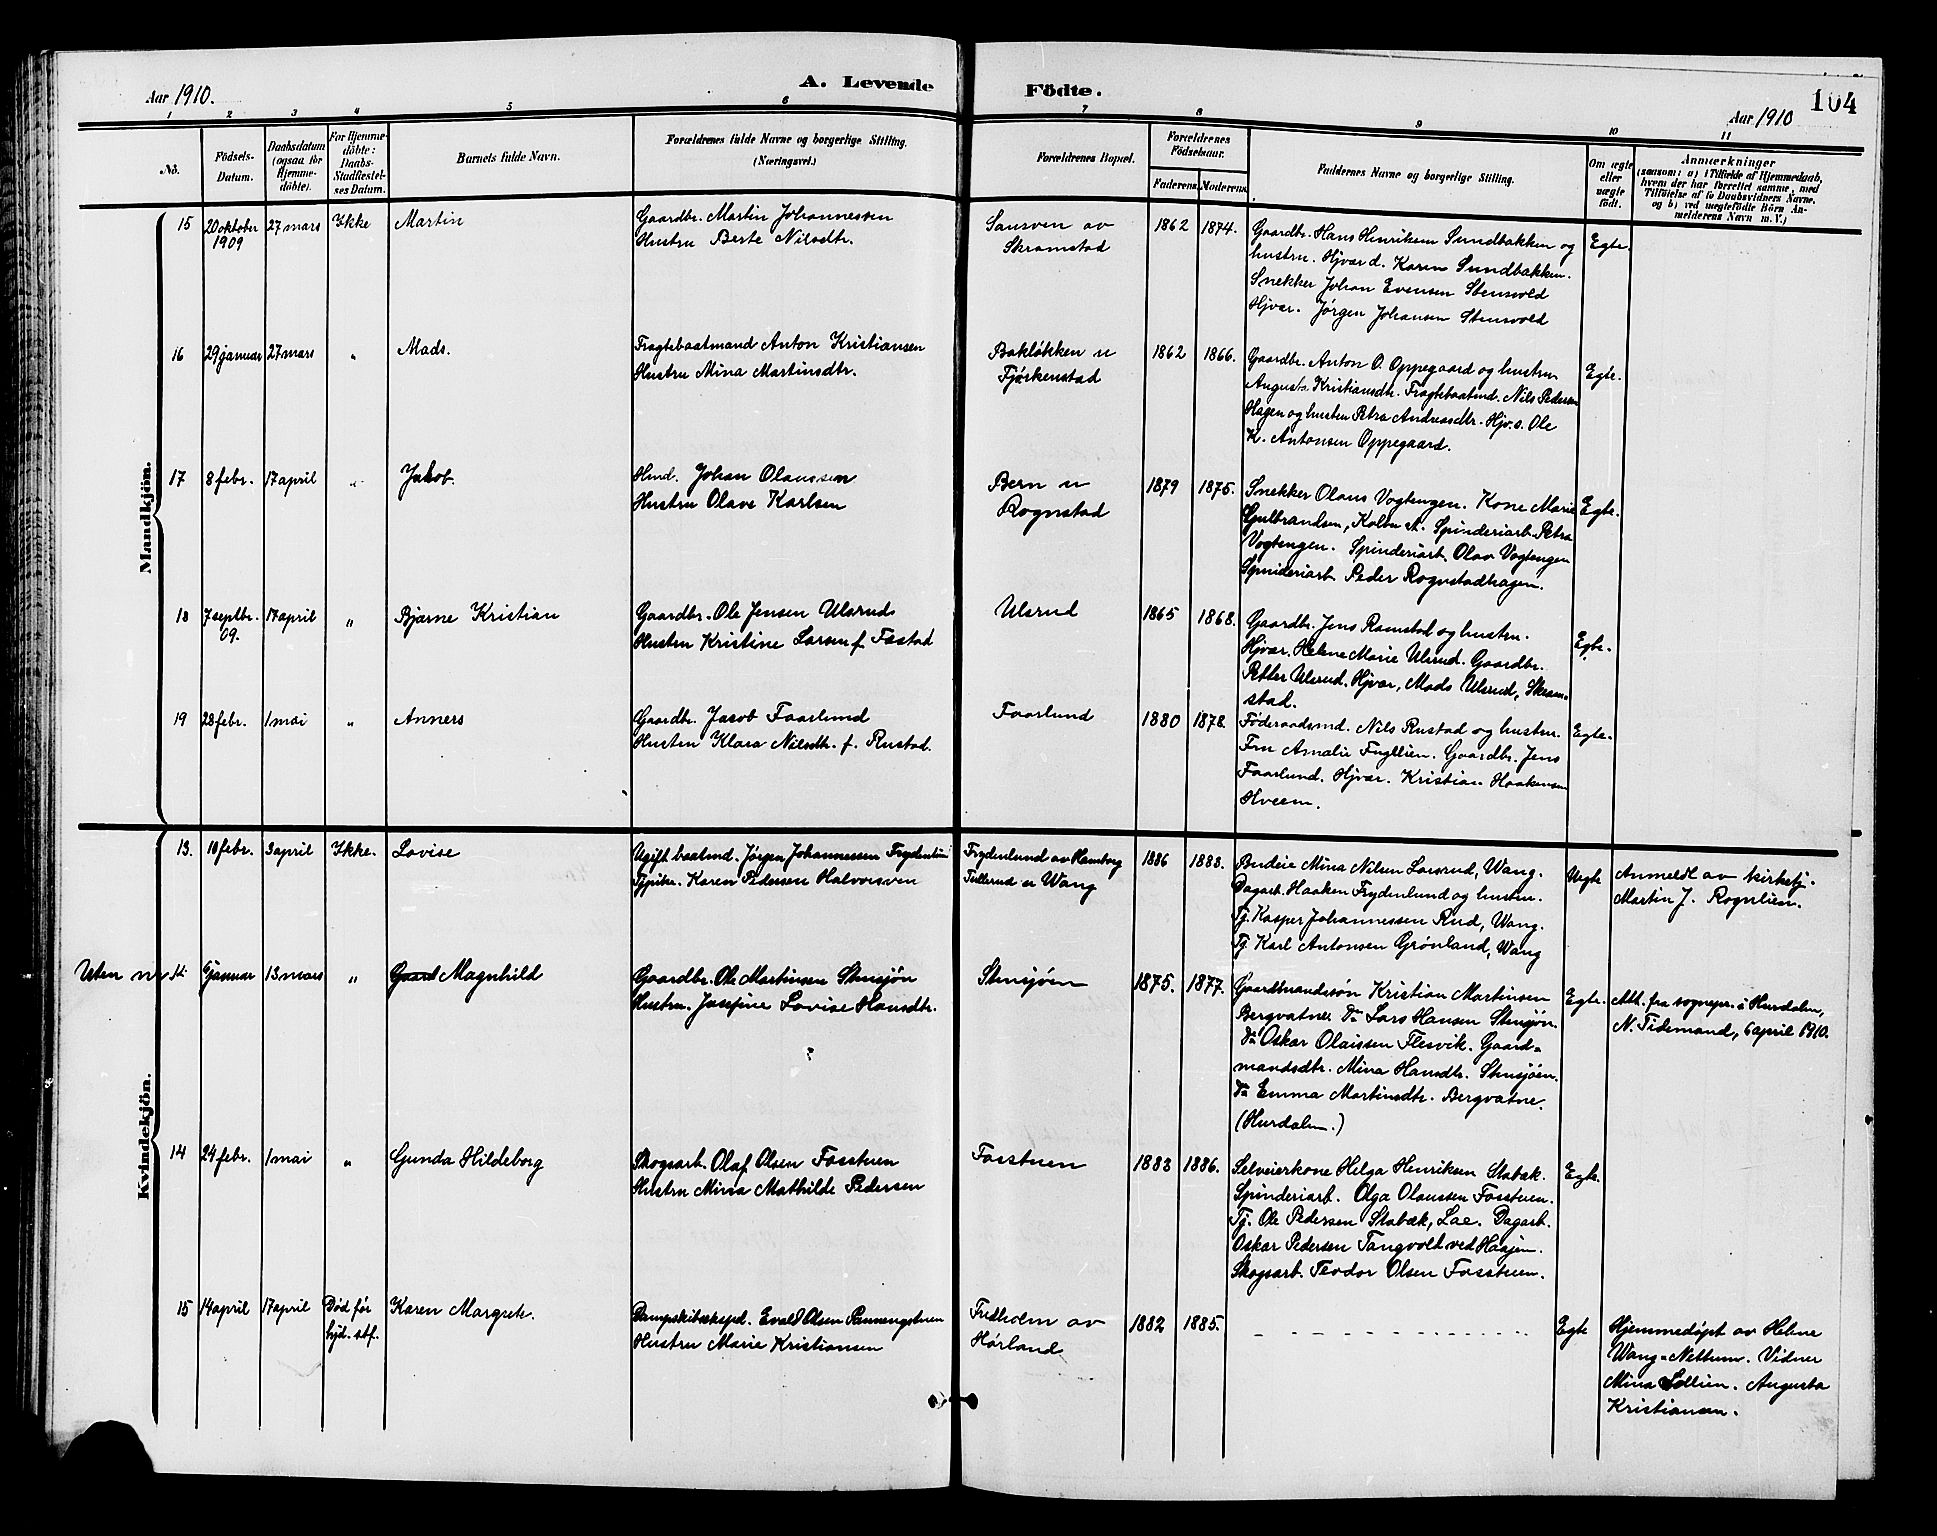 Aar 1910.
A. Levende Födte.
Aar 1910
104
1 2 3 4 5 6 7 8 9 10 11
No.
Födsels-Datum.
Daabsdatum (ogsaa for Hjemme-döbte).
For Hjemme-döbte: Daabs-Stadfæstel-ses Datum.
Barnets fulde Navn.
Forældrenes fulde Navne og borgerlige Stilling. (Næringsvei.)
Forældrenes Bopæl.
Forældrenes Födselsaar.
Faderens. Moderens.
Faddernes Navne og borgerlige Stilling.
Om ægte eller uægte födt.
Anmærkninger
(saasom: a) i Tilfælde af Hjemmedaab,
hvem der har forrettet samme, med
Tilföielse af to Daabsvidners Navne,
og b) ved uægtefödte Börn An-
melderens Navn m. V.)
Mandkjön.
15 20 oktober 1909 27 mars Ikke Martin
Gaardbr. Martin Johannessen
Hustru Berte Nilsdtr.
Sansven av
Skramstad
1862 1874.
Gaardbr. Hans Henriksen Sundbakken og
hustru. Hjvar d. Karen Sundbakken.
Snekker Johan Evensen Stensvold
Hjvar. Jørgen Johansen Stensvold
Egte.
16 29 januar 27 mars " Mads.
Fragtebaatmand Anton Kristiansen
Hustru Mina Martinsdtr.
Bakløkken u
Fjørkenstad
1862 1866.
Gaardbr. Anton O. Oppegaard og hustru
Augusta Kristiansdtr. Fragtebaatmd. Nils Pedersen
Hagen og hustru Petra Andreasdtr. Hjv. s. Ole
K. Antonsen Oppegaard.
Egte.
17 8 febr. 17 april " Jakob.
Hmd. Johan Olaussen
Hustru Olave Karlsen
Bern u
Rognstad
1879 1875.
Snekker Olaus Vogtengen. Kone Marie
Gulbrandsen, Kolbu A. Spinderiarb. Petra
Vogtengen. Spinderiarb. Olav Vogtengen
Spinderiarb. Peder Rognstadhagen.
Egte.
18 7 septbr. 09. 17 april " Bjarne Kristian
Gaardbr. Ole Jensen Ulsrud
Hustru Kristine Larsen f. Fastad
Ulsrud
1865 1868.
Gaardbr. Jens Ramstad og hustru.
Hjvar. Helene Marie Ulsrud. Gaardbr.
Petter Ulsrud. Hjvar, Mads Ulsrud, Skram-
stad.
Egte.
19 28 febr. 1 mai " Anners
Gaardbr. Jacob Faarlund
Hustru Klara Nilsdtr. f. Rustad.
Faarlund
1880 1878.
Føderaadsmd. Nils Rustad og hustru.
Fru Amalie Fugllien. Gaardbr. Jens
Faarlund. Hjvar. Kristian Haakensen
Hveem.
Egte.
Kvindekjön.
13. 10 febr. 3 april Ikke. Lovise
Ugift baatmd. Jørgen Johannessen Frydenlund
Tjpike. Karen Pedersen Halvorsven
Frydenlund av Hamborg
Fullerud i Wang
1886 1883.
Budeie Mina Nilsen Laurud, Wang.
Dagarb. Haaken Frydenlund og hustru.
Tj. Kasper Johannessen Rud, Wang.
Tj. Karl Antonsen Grønland, Wang
Uegte
Anmeldt av kirketj.
Martin J. Rognlien.
Uten nr. januar 13 mars " Magnhild
Gaardbr. Ole Martinsen Stensjøn
Hustru. Josefine Lovise Hansdtr.
Stensjøen
1875. 1877.
Gaardbrandssøn Kristian Martinsen
Bergvatne. Do Lars Hansen Stensjøn
Do Oskar Olaissen Flesvik. Gaard-
mandsdtr. Mina Hansdtr. Stensjøen.
Do Emma Martinsdtr. Bergvatne.
(Hurdalen.)
Egte.
Att. fra sognepr. i Hurdalen,
N. Tidemand, 6 april 1910.
14 24 febr. 1 mai " Gunda Hildeborg
Skogsarb. Olaf Olsen Fosstuen
Hustru Mina Mathilde Pedersen
Fosstuen
1883 1886.
Selveierkone Helga Henriksen Stabæk.
Spinderiarb. Olga Olaussen Fosstuen.
Tj. Ole Pedersen Stabæk, Lae. Dagarb.
Oskar Pedersen Tangvolt ved Haajen.
Skogsarb. Teodor Olsen Fosstuen.
Egte.
15 14 april 17 april Død før kjd. stf. Karen Margrete.
Dampskibseksped. Evald Olsen Pannengstuen
Hustru Marie Kristiansen
Fredholm av
Hørland
1882 1885.
Egte
Hjemmedøpt av Helene
Wang-Nettum. Vidner
Mina Sollien. Augusta
Kristiansen.